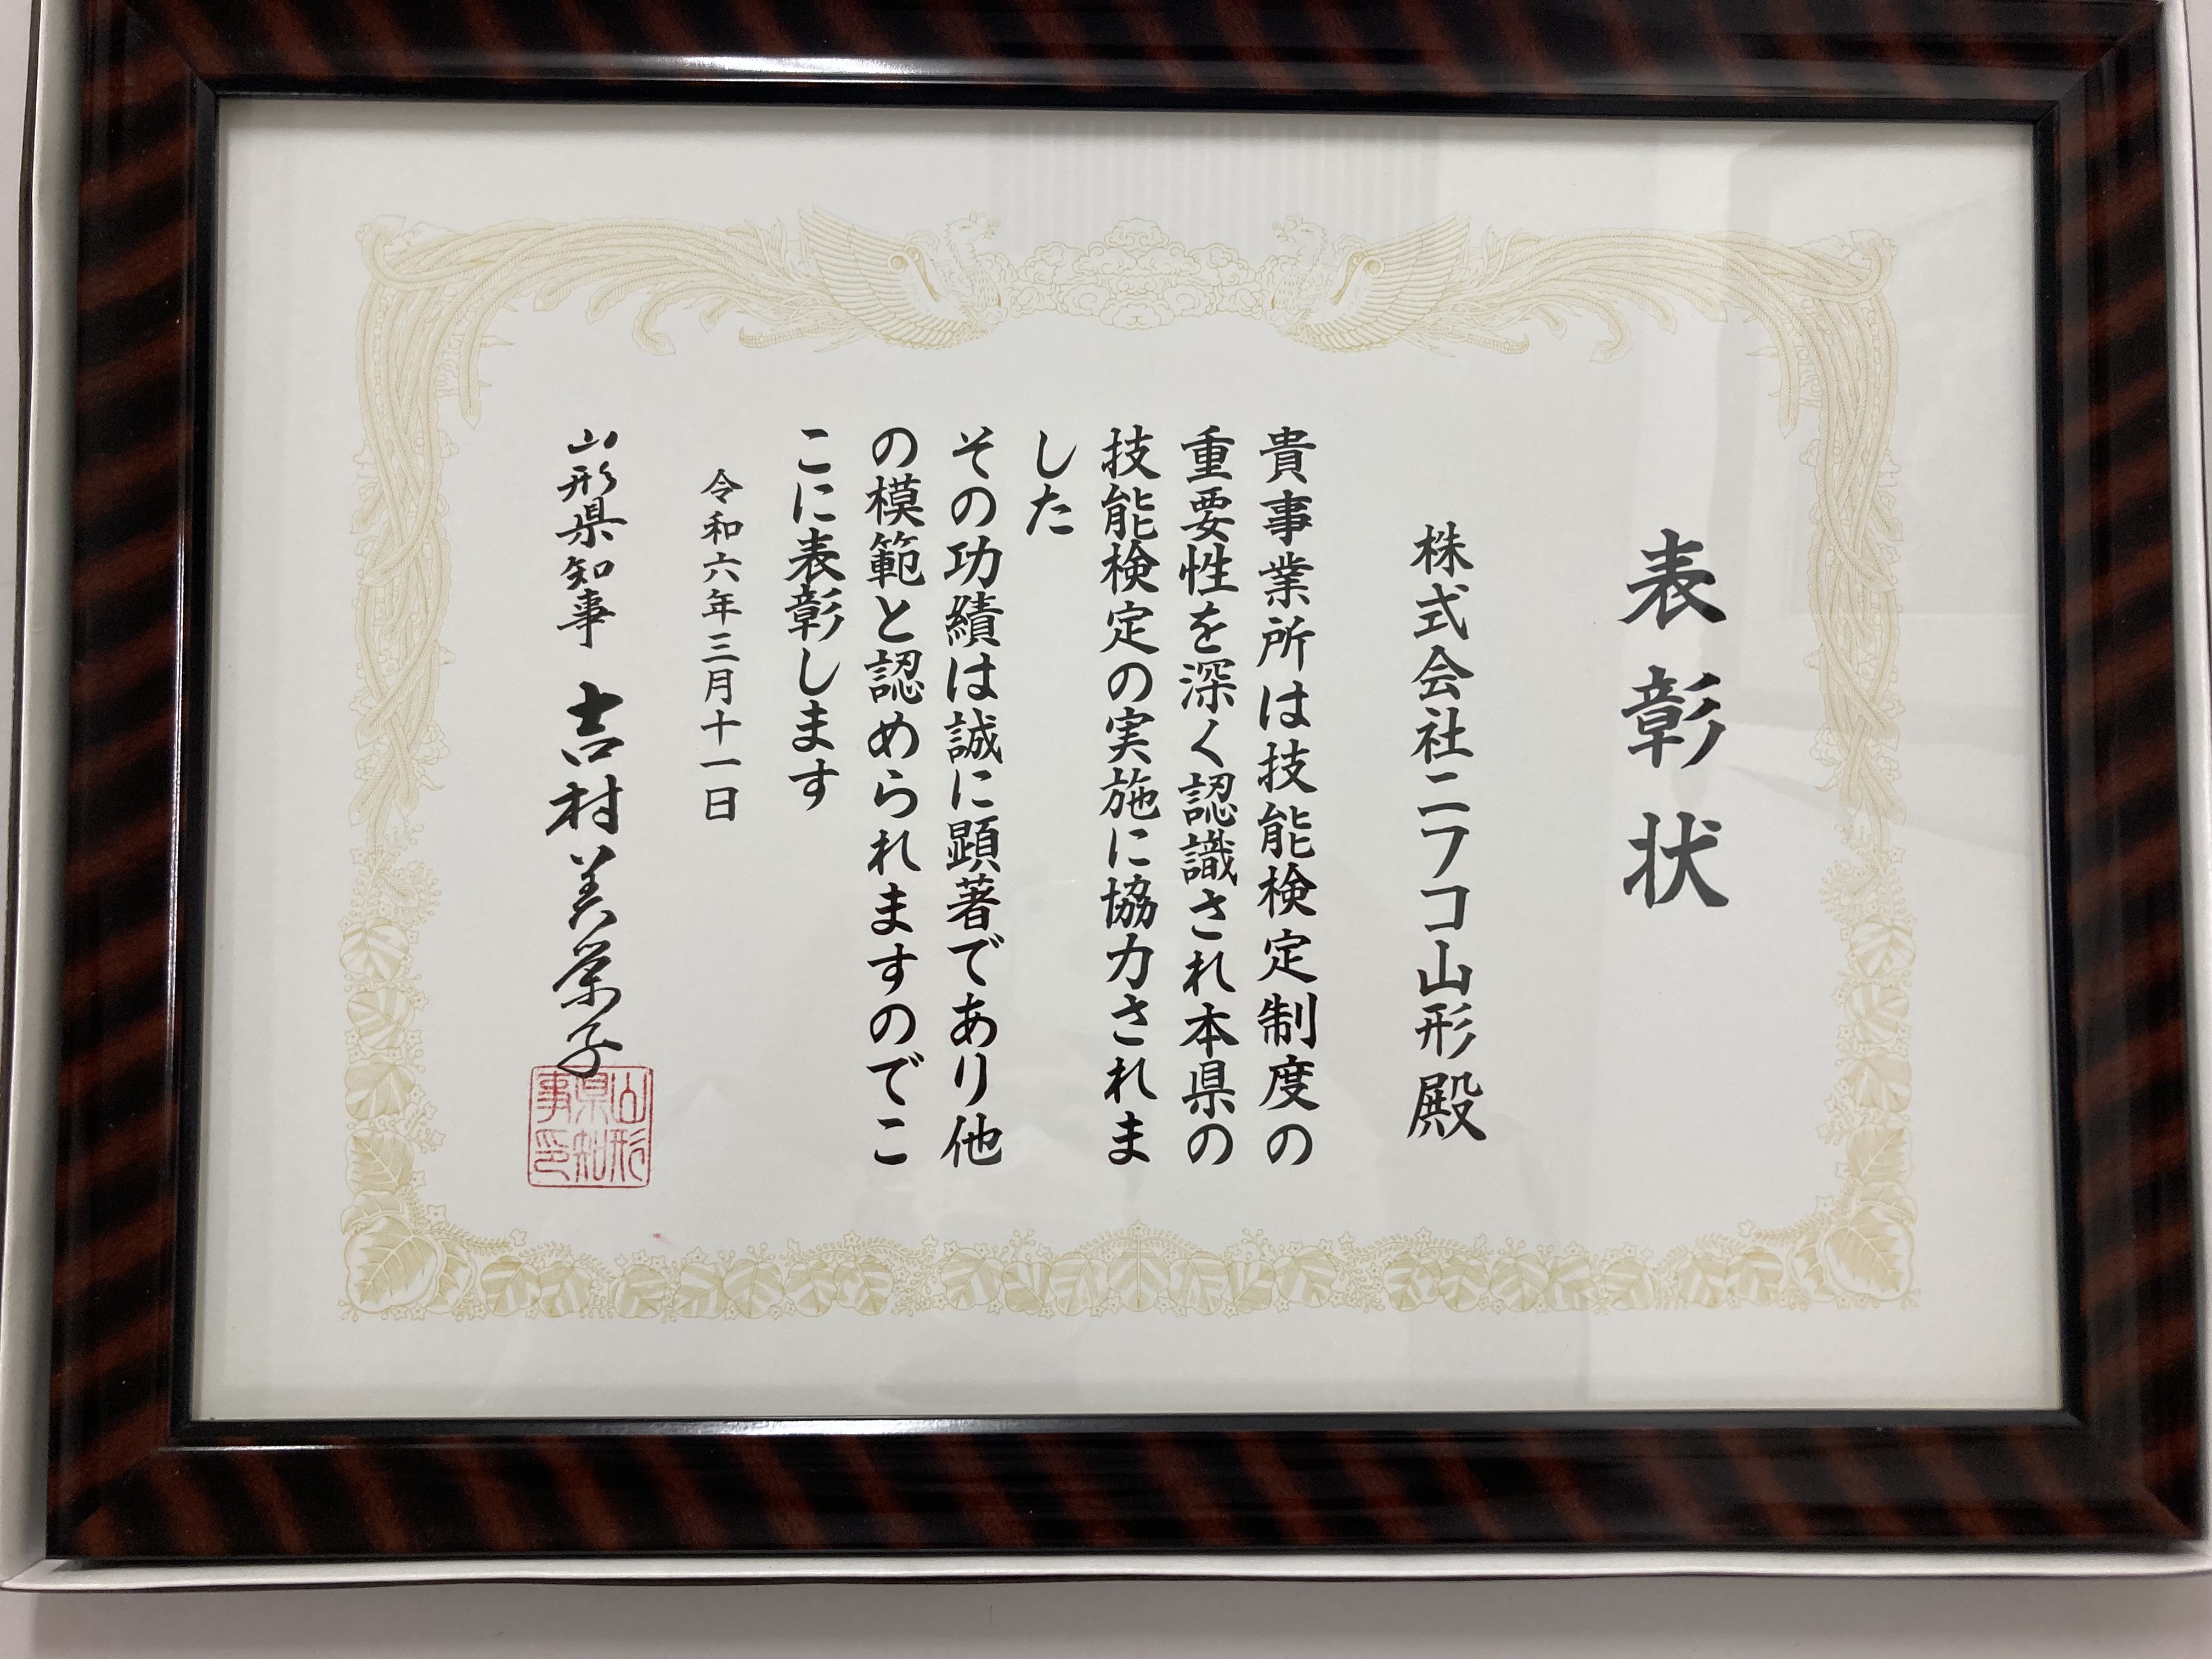 表彰状
株式会社ニフコ山形殿
貴事業所は技能検定制度の
重要性を深く認識され本県の
技能検定の実施に協力されま
した
その功績は誠に顕著であり他
の模範と認められますのでこ
こに表彰します
令和六年三月十一日
山形県知事 吉村美栄子
山形県知事印